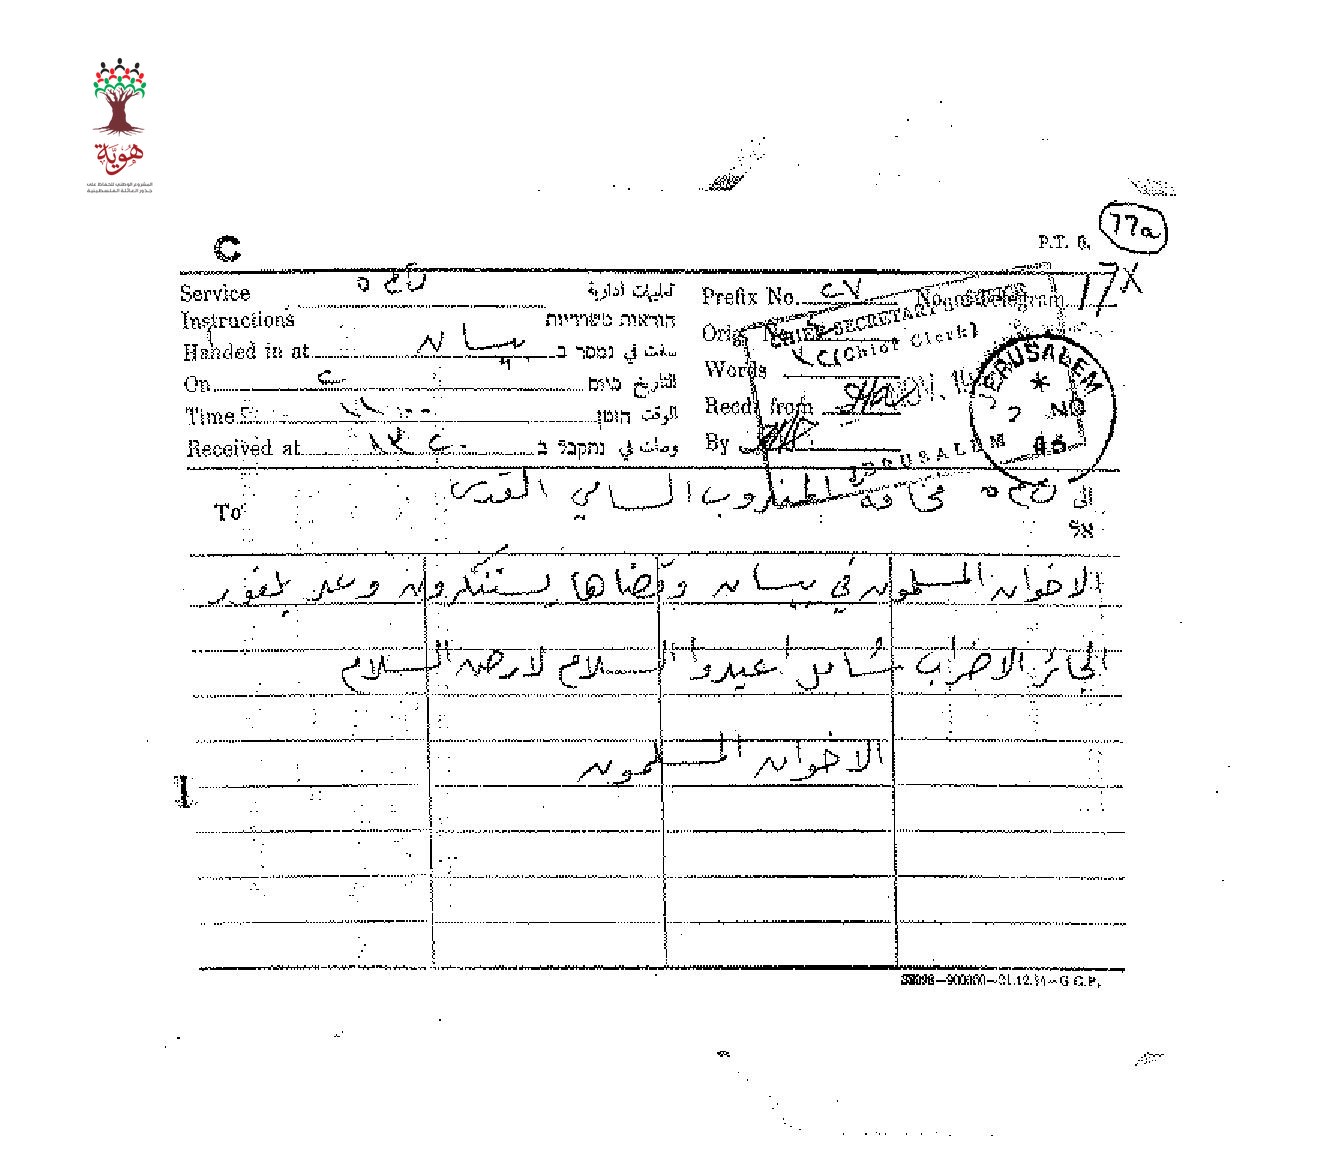 هويّة
المشروع الوطني للحفاظ على
جذور العائلة الفلسطينية
77a
C
P.T. 6.
Service تعليمات أدارية
Instructions הוראות משרדיות
Handed in at بيسان سلمت في נמסר ב
On ٢ التاريخ ביום
Time الوقت הזמן
Received at وصلت في נתקבל ב
Prefix No. ٢٧ No. of Telegram 17X
Orig. No.
Words
Recd. from
By
CHIEF SECRETARY'S OFFICE
(Chief Clerk)
NOV. 
JERUSALEM
JERUSALEM
NO
45
To الى فخامة المندوب السامي القدس
אל
الاخوان المسلمون في بيسان وقضاها يستنكرون وعد بلفور
الجائر الاضراب شامل اعيدوا السلام لارض السلام
الاخوان المسلمون